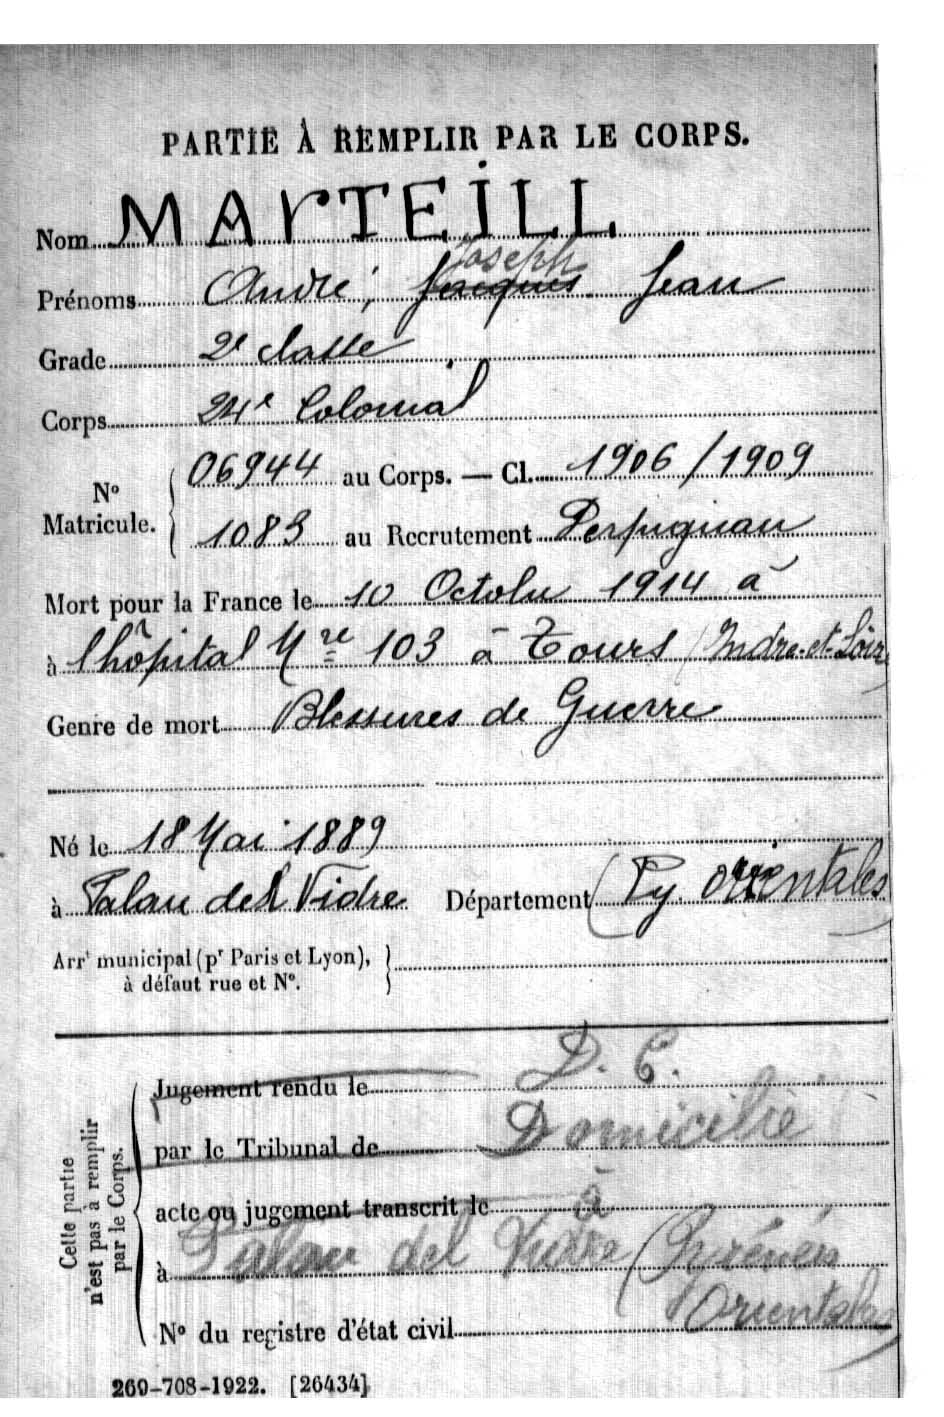 PARTIE À REMPLIR PAR LE CORPS.
Nom MArTEiLL
Joseph
Prénoms André, Jacques Jean
Grade 2e classe
Corps 24e Colonial
No Matricule. { 06944 au Corps. — Cl. 1906 / 1909
1083 au Recrutement Perpignan
Mort pour la France le 10 Octobre 1914 à
à l'hôpital Mre 103 à Tours (Indre-et-Loire
Genre de mort Blessures de Guerre
Né le 18 Mai 1889
à Palau del Vidre Département (Py. Orientales)
Arrt municipal (pr Paris et Lyon),
à défaut rue et No.
Cette partie n'est pas à remplir par le Corps.
Jugement rendu le D. C.
par le Tribunal de Domicilié
acte ou jugement transcrit le à
à Palau del Vidre (Pyrénées
Orientales)
No du registre d'état civil
269-708-1922. [26434]